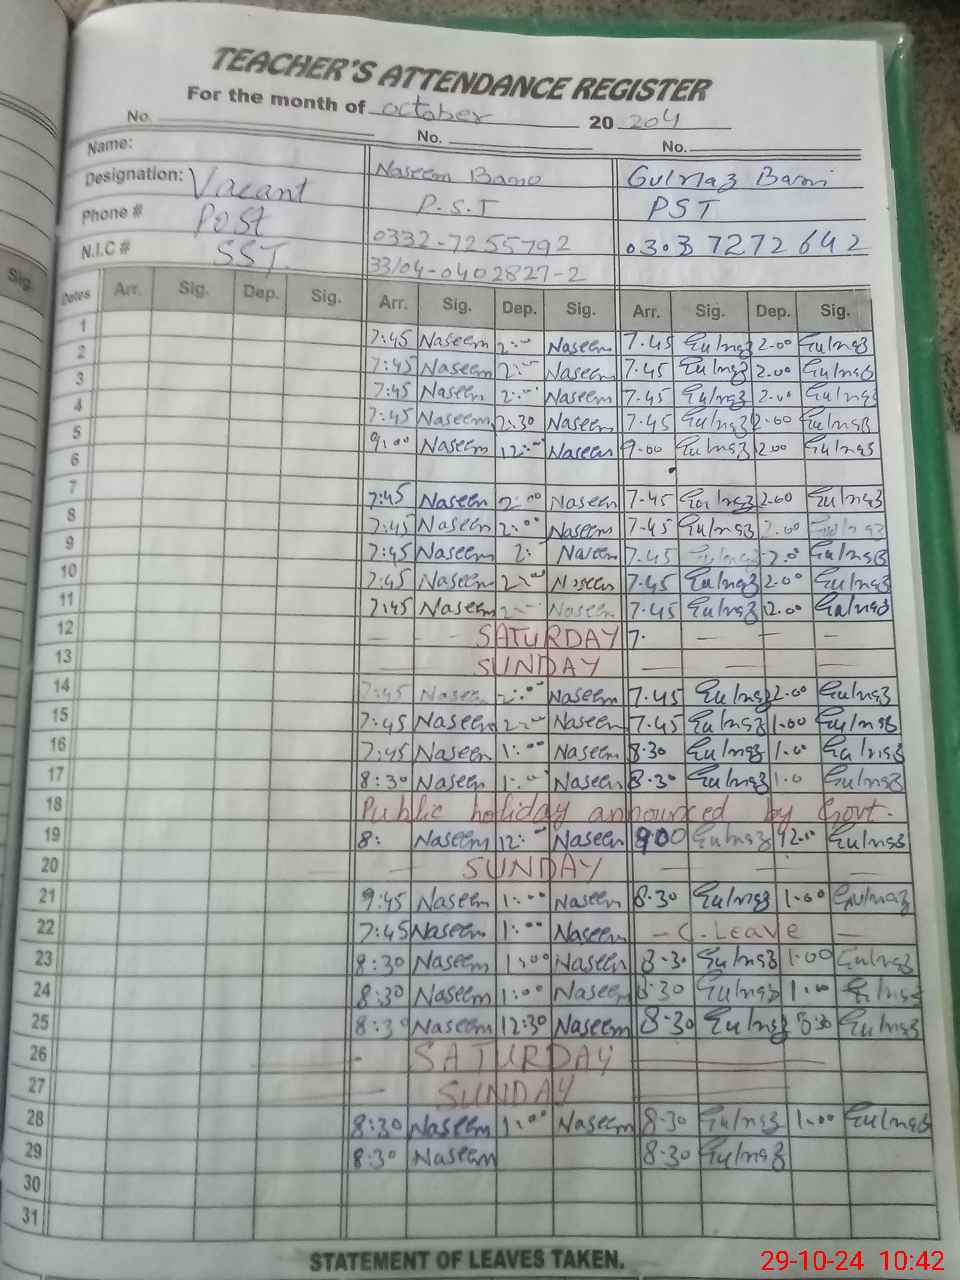 TEACHER'S ATTENDANCE REGISTER
For the month of october 20 204
No. No. No.
Name: Naseem Bano Gulnaz Barri
Designation: Vacant P.S.T PST
Phone # Post 0332-7255792 0303 7272642
N.I.C # SST. 33/04-0402827-2
Sig.
Dates Arr. Sig. Dep. Sig. Arr. Sig. Dep. Sig. Arr. Sig. Dep. Sig.
1 7:45 Naseem 2:00 Naseem 7.45 Gulnaz 2.00 Gulnaz
2 7:45 Naseem 2:00 Naseem 7.45 Gulnaz 2.00 Gulnaz
3 7:45 Naseem 2:00 Naseem 7.45 Gulnaz 2.00 Gulnaz
4 7:45 Naseem 2:30 Naseem 7.45 Gulnaz 2.00 Gulnaz
5 9:00 Naseem 12:00 Naseem 9.00 Gulnaz 2.00 Gulnaz
6
7 7:45 Naseem 2:00 Naseem 7.45 Gulnaz 2.00 Gulnaz
8 7:45 Naseem 2:00 Naseem 7.45 Gulnaz 2.00 Gulnaz
9 7:45 Naseem 2: Naseem 7.45 Gulnaz 2.0 Gulnaz
10 7:45 Naseem 2:00 Naseem 7.45 Gulnaz 2.00 Gulnaz
11 7:45 Naseem 2:00 Naseem 7.45 Gulnaz 12.00 Gulnaz
12 — — SATURDAY 7. — — —
13 — SUNDAY — — — —
14 7:45 Naseem 2:00 Naseem 7.45 Gulnaz 2.00 Gulnaz
15 7:45 Naseem 2:00 Naseem 7.45 Gulnaz 1.00 Gulnaz
16 7:45 Naseem 1:00 Naseem 8.30 Gulnaz 1.00 Gulnaz
17 8:30 Naseem 1:00 Naseem 8.30 Gulnaz 1.0 Gulnaz
18 Public holiday announced by Govt.
19 8: Naseem 12:00 Naseem 900 Gulnaz 12.00 Gulnaz
20 — — SUNDAY — — — —
21 9:45 Naseem 1:00 Naseem 8.30 Gulnaz 1.00 Gulnaz
22 7:45 Naseem 1:00 Naseem — C.Leave —
23 8:30 Naseem 1:00 Naseem 8.30 Gulnaz 1.00 Gulnaz
24 8:30 Naseem 1:00 Naseem 8.30 Gulnaz 1.00 Gulnaz
25 8:30 Naseem 12:30 Naseem 8.30 Gulnaz Gulnaz
26 - SATURDAY
27 — SUNDAY
28 8:30 Naseem 1:00 Naseem 8.30 Gulnaz 1.00 Gulnaz
29 8.30 Naseem 8.30 Gulnaz
30
31
STATEMENT OF LEAVES TAKEN.
29-10-24 10:42